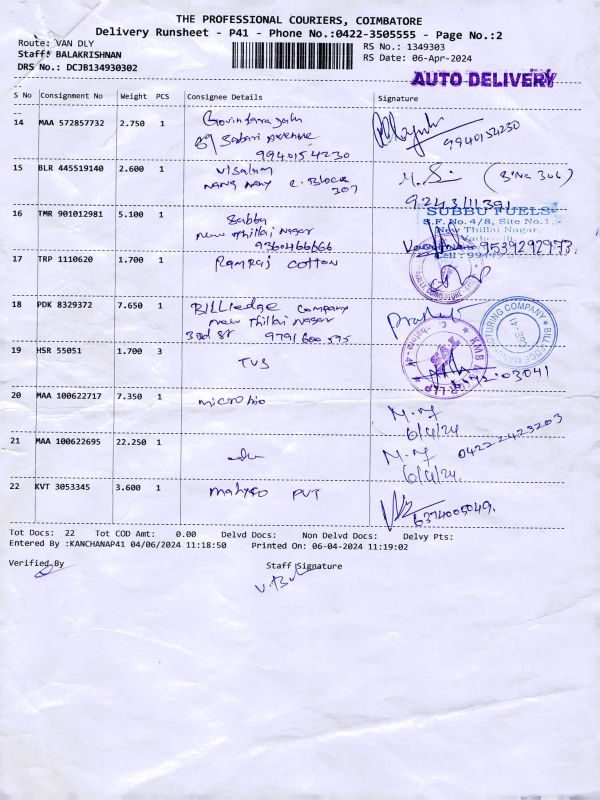 THE PROFESSIONAL COURIERS, COIMBATORE
Delivery Runsheet - P41 - Phone No.:0422-3505555 - Page No.:2
Route: VAN DLY
RS No.: 1349303
Staff: BALAKRISHNAN
RS Date: 06-Apr-2024
DRS No.: DCJB134930302
AUTO DELIVERY
S No Consignment No Weight PCS Consignee Details Signature
14 MAA 572857732 2.750 1
9940154230
9940154230
15 BLR 445519140 2.600 1
C. Block
307
9243111391
16 TMR 901012981 5.100 1 Subbu
New Thillai Nagar
9360466666
SUBBU FUELS
S.F. No. 4/8, Site No.1,
New Thillai Nagar,
9539292973
17 TRP 1110620 1.700 1 Ramraj Cotton
18 PDK 8329372 7.650 1 Billledge Company
New Thillai Nagar
3rd St 9791600595
19 HSR 55051 1.700 3 TVS
20 MAA 100622717 7.350 1 Micro bio
6/4/24
21 MAA 100622695 22.250 1
6/4/24
22 KVT 3053345 3.600 1 PVT
6374005049.
Tot Docs: 22 Tot COD Amt: 0.00 Delvd Docs: Non Delvd Docs: Delvy Pts:
Entered By :KANCHANAP41 04/06/2024 11:18:50 Printed On: 06-04-2024 11:19:02
Verified By
Staff Signature